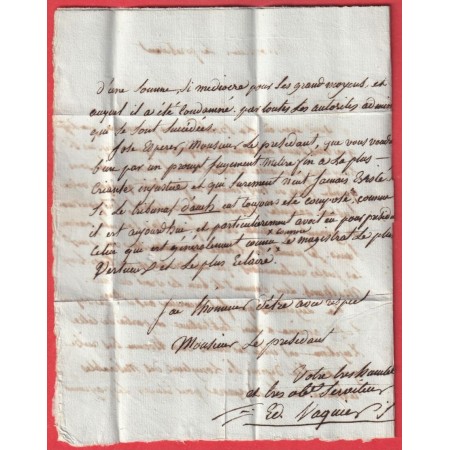 d'une somme, si mediocre pour ses grand moyens, et
auquel il a été Condamné. par toutes les autorités admin
qui se sont succédées.
J'ose Esperer, Monsieur Le president, que vous voudrez
bien par un prompt payement Mettre fin a La plus
Criante injustice et qui surement n'eut Jamais Existé
Si Le tribunal d'auch eut toujours été composé, comme
il est aujourd'hui, et particulierement avoit eu pour president
Celui qui est generalement connu Le magistrat Le plus
Vertueux et Le plus Eclairé.
J'ai l'honneur d'être avec respect
Monsieur Le president
Votre tres humble
et tres obt. Serviteur
Ed. Vaquier